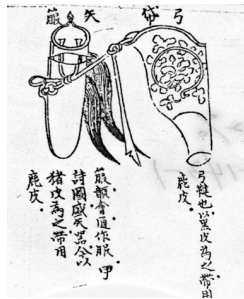 弓帒
矢箙
弓鞬也以黑皮為之帶用
鹿皮
箙韻會通作服 甲
詩國盛矢器今以
猪皮為之帶用
鹿皮